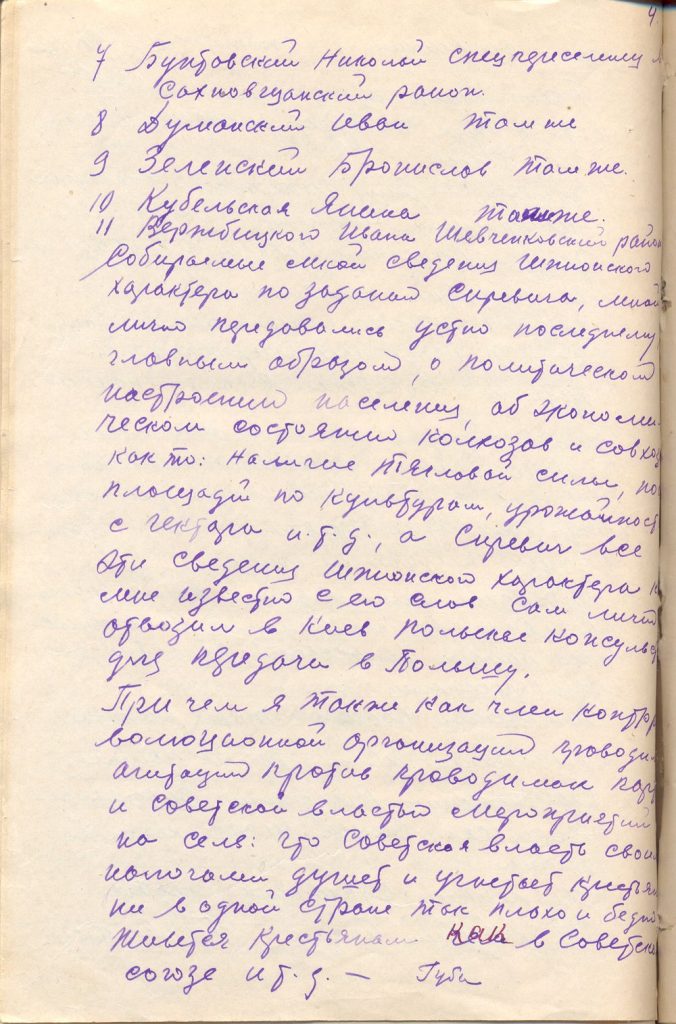 4
7 Бунтовский Николай спецпереселенец
Сахновщанский район.
8 Думанский Иван там же
9 Зеленский Бронислов там же.
10 Кубельская Янина там же.
11 Вержбицкого Ивана Шевченковский район
Собираемые мной сведения шпионского
характера по заданий Сиревича, мной
лично передовались устно последнему
главным образом, о политическом
настроений населения, об экономи-
ческом состоянию колхозав и совхоз
как то: наличие тягловой силы, по
площадй по культурам, урожайност
с гектара и.т.д., а Сиревич все
эти сведения шпионского характера к
мне известно с его слов сам лично
отвозил в Киев польское консульс
для передачи в Польшу.
При чем я также как член контр
волюционной организаций проводил
агитаций против проводимой парт
и советской властью мероприятий
на селе: что Советская власть своим
налогами душет и угнетает крестьян
ни в одной стране так плохо и бедно
живется крестьянам как в Советско
союзе и т.д. — Губа